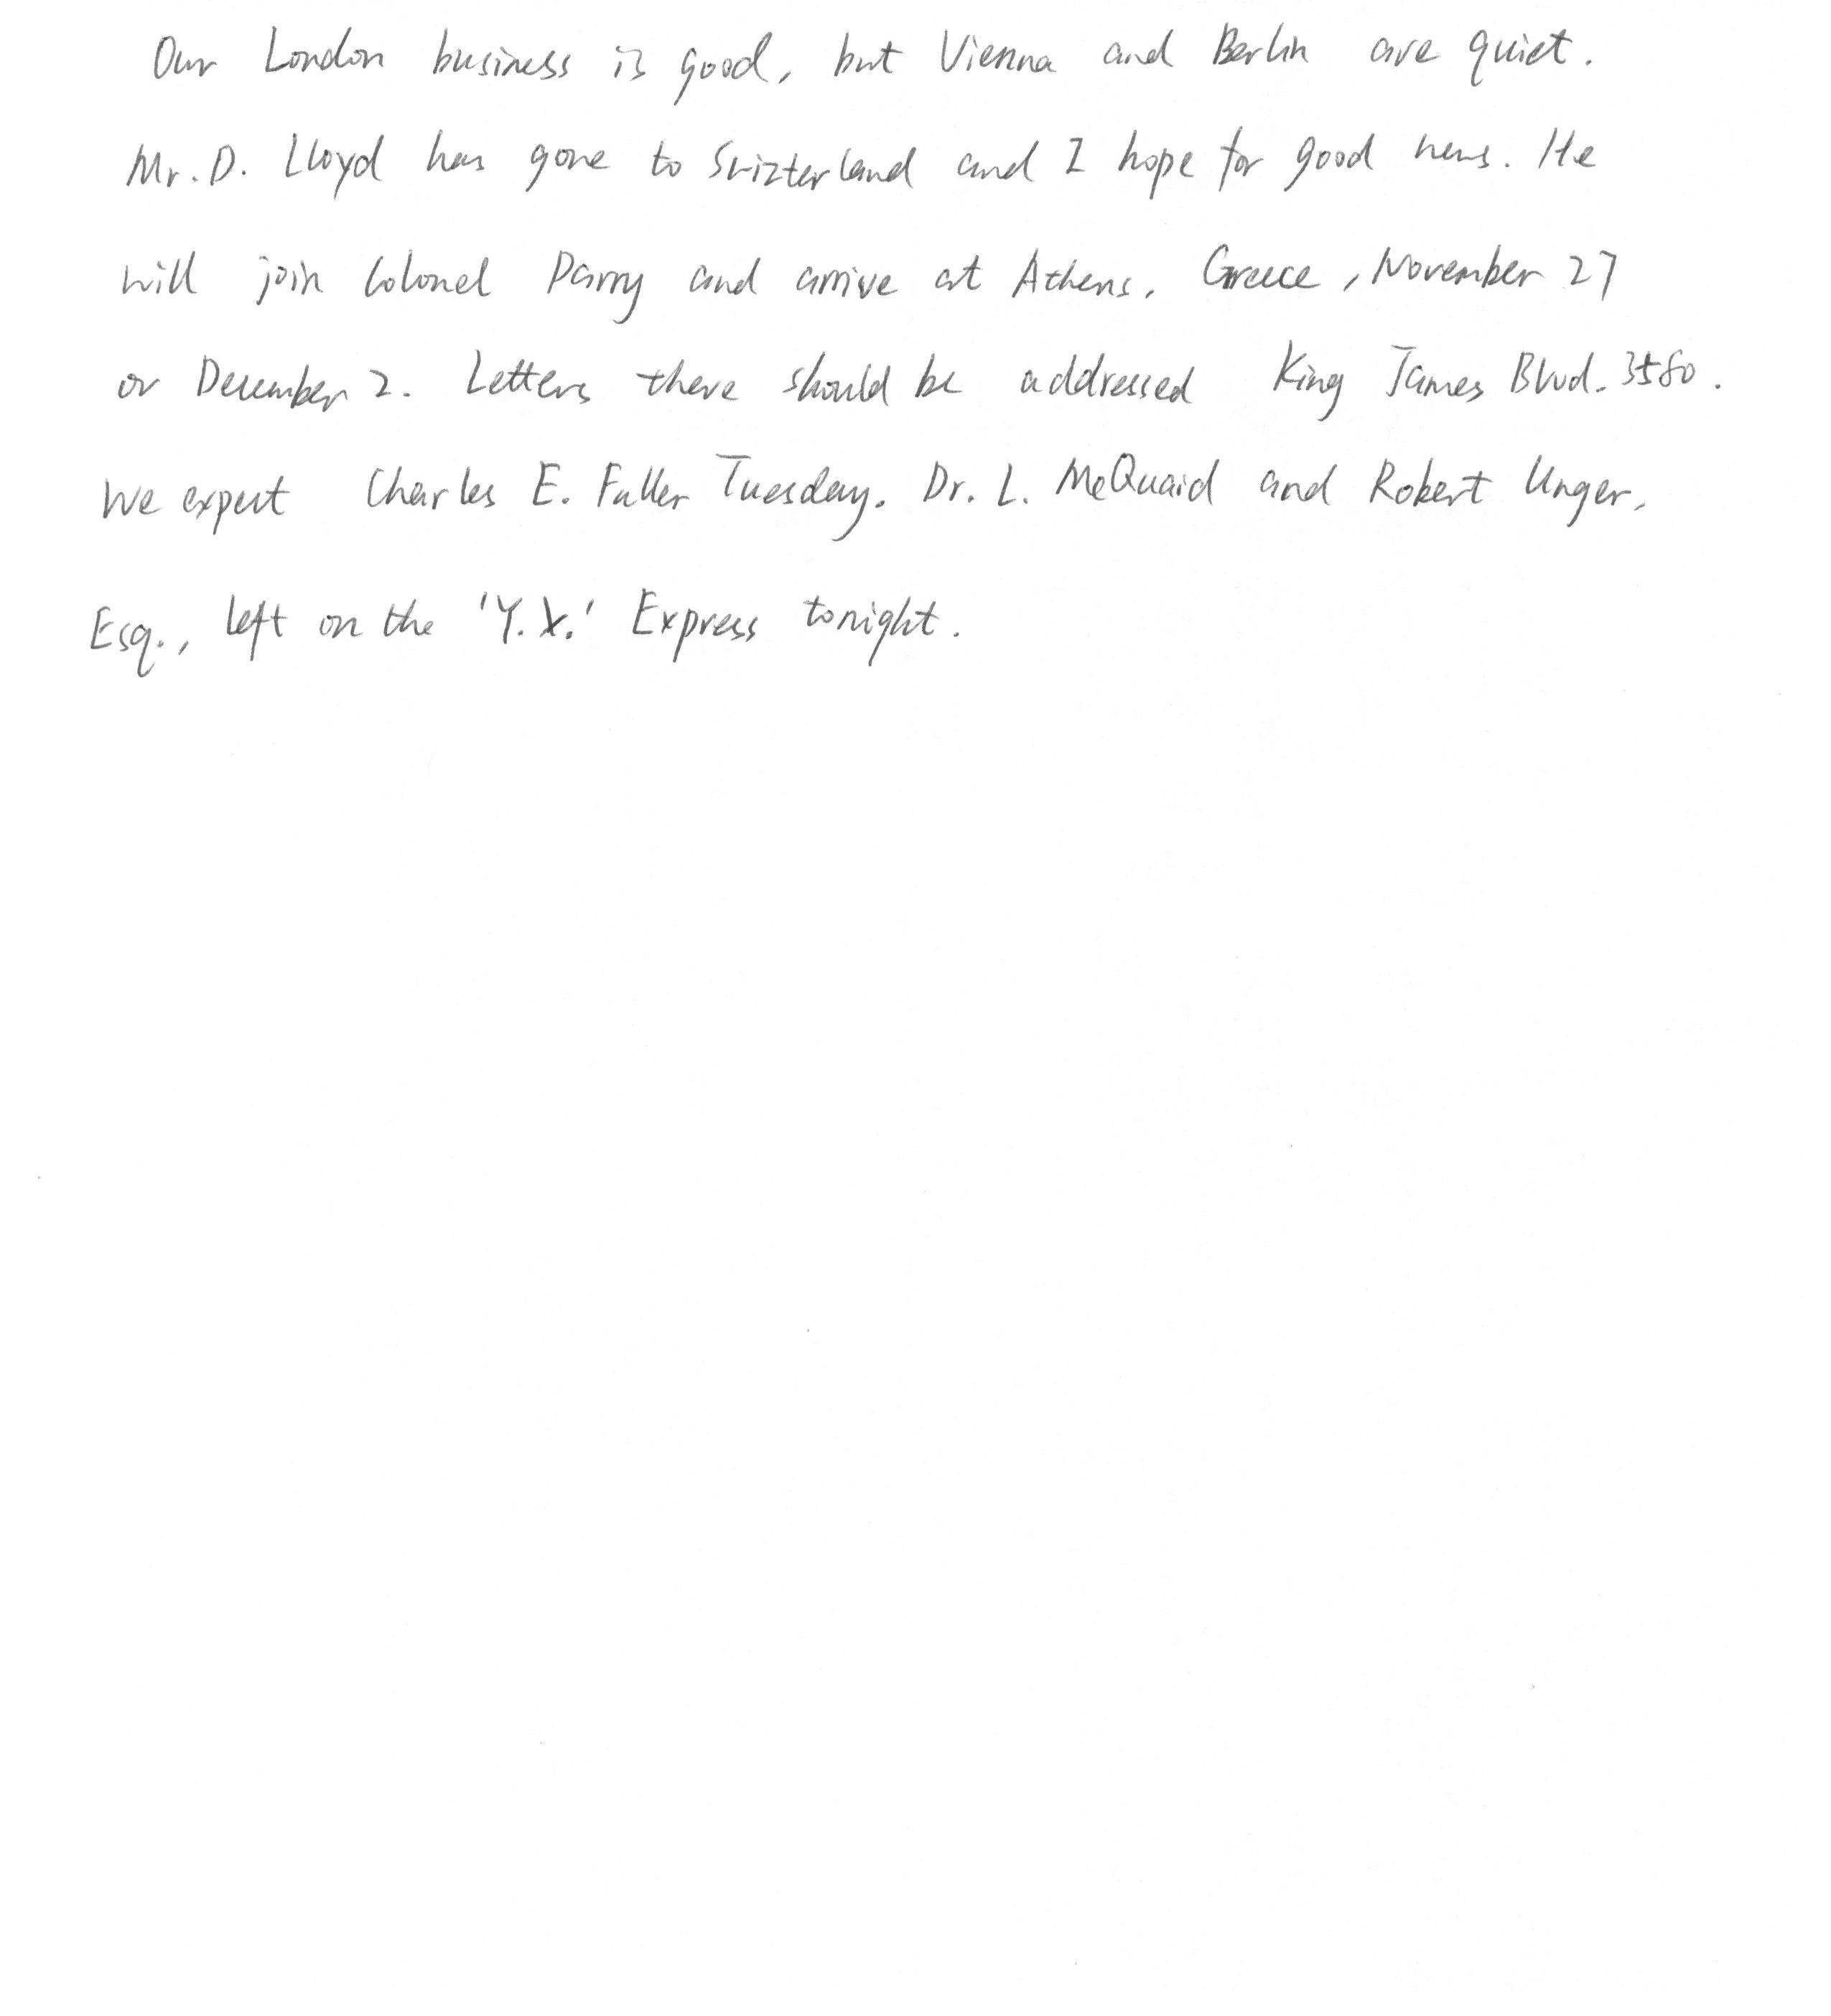 Our London business is good, but Vienna and Berlin are quiet.
Mr. D. Lloyd has gone to Swizterland and I hope for good news. He
will join Colonel Parry and arrive at Athens, Greece, November 27
or December 2. Letters there should be addressed King James Blvd. 3580.
We expect Charles E. Fuller Tuesday. Dr. L. McQuaid and Robert Unger,
Esq., left on the 'Y.X.' Express tonight.